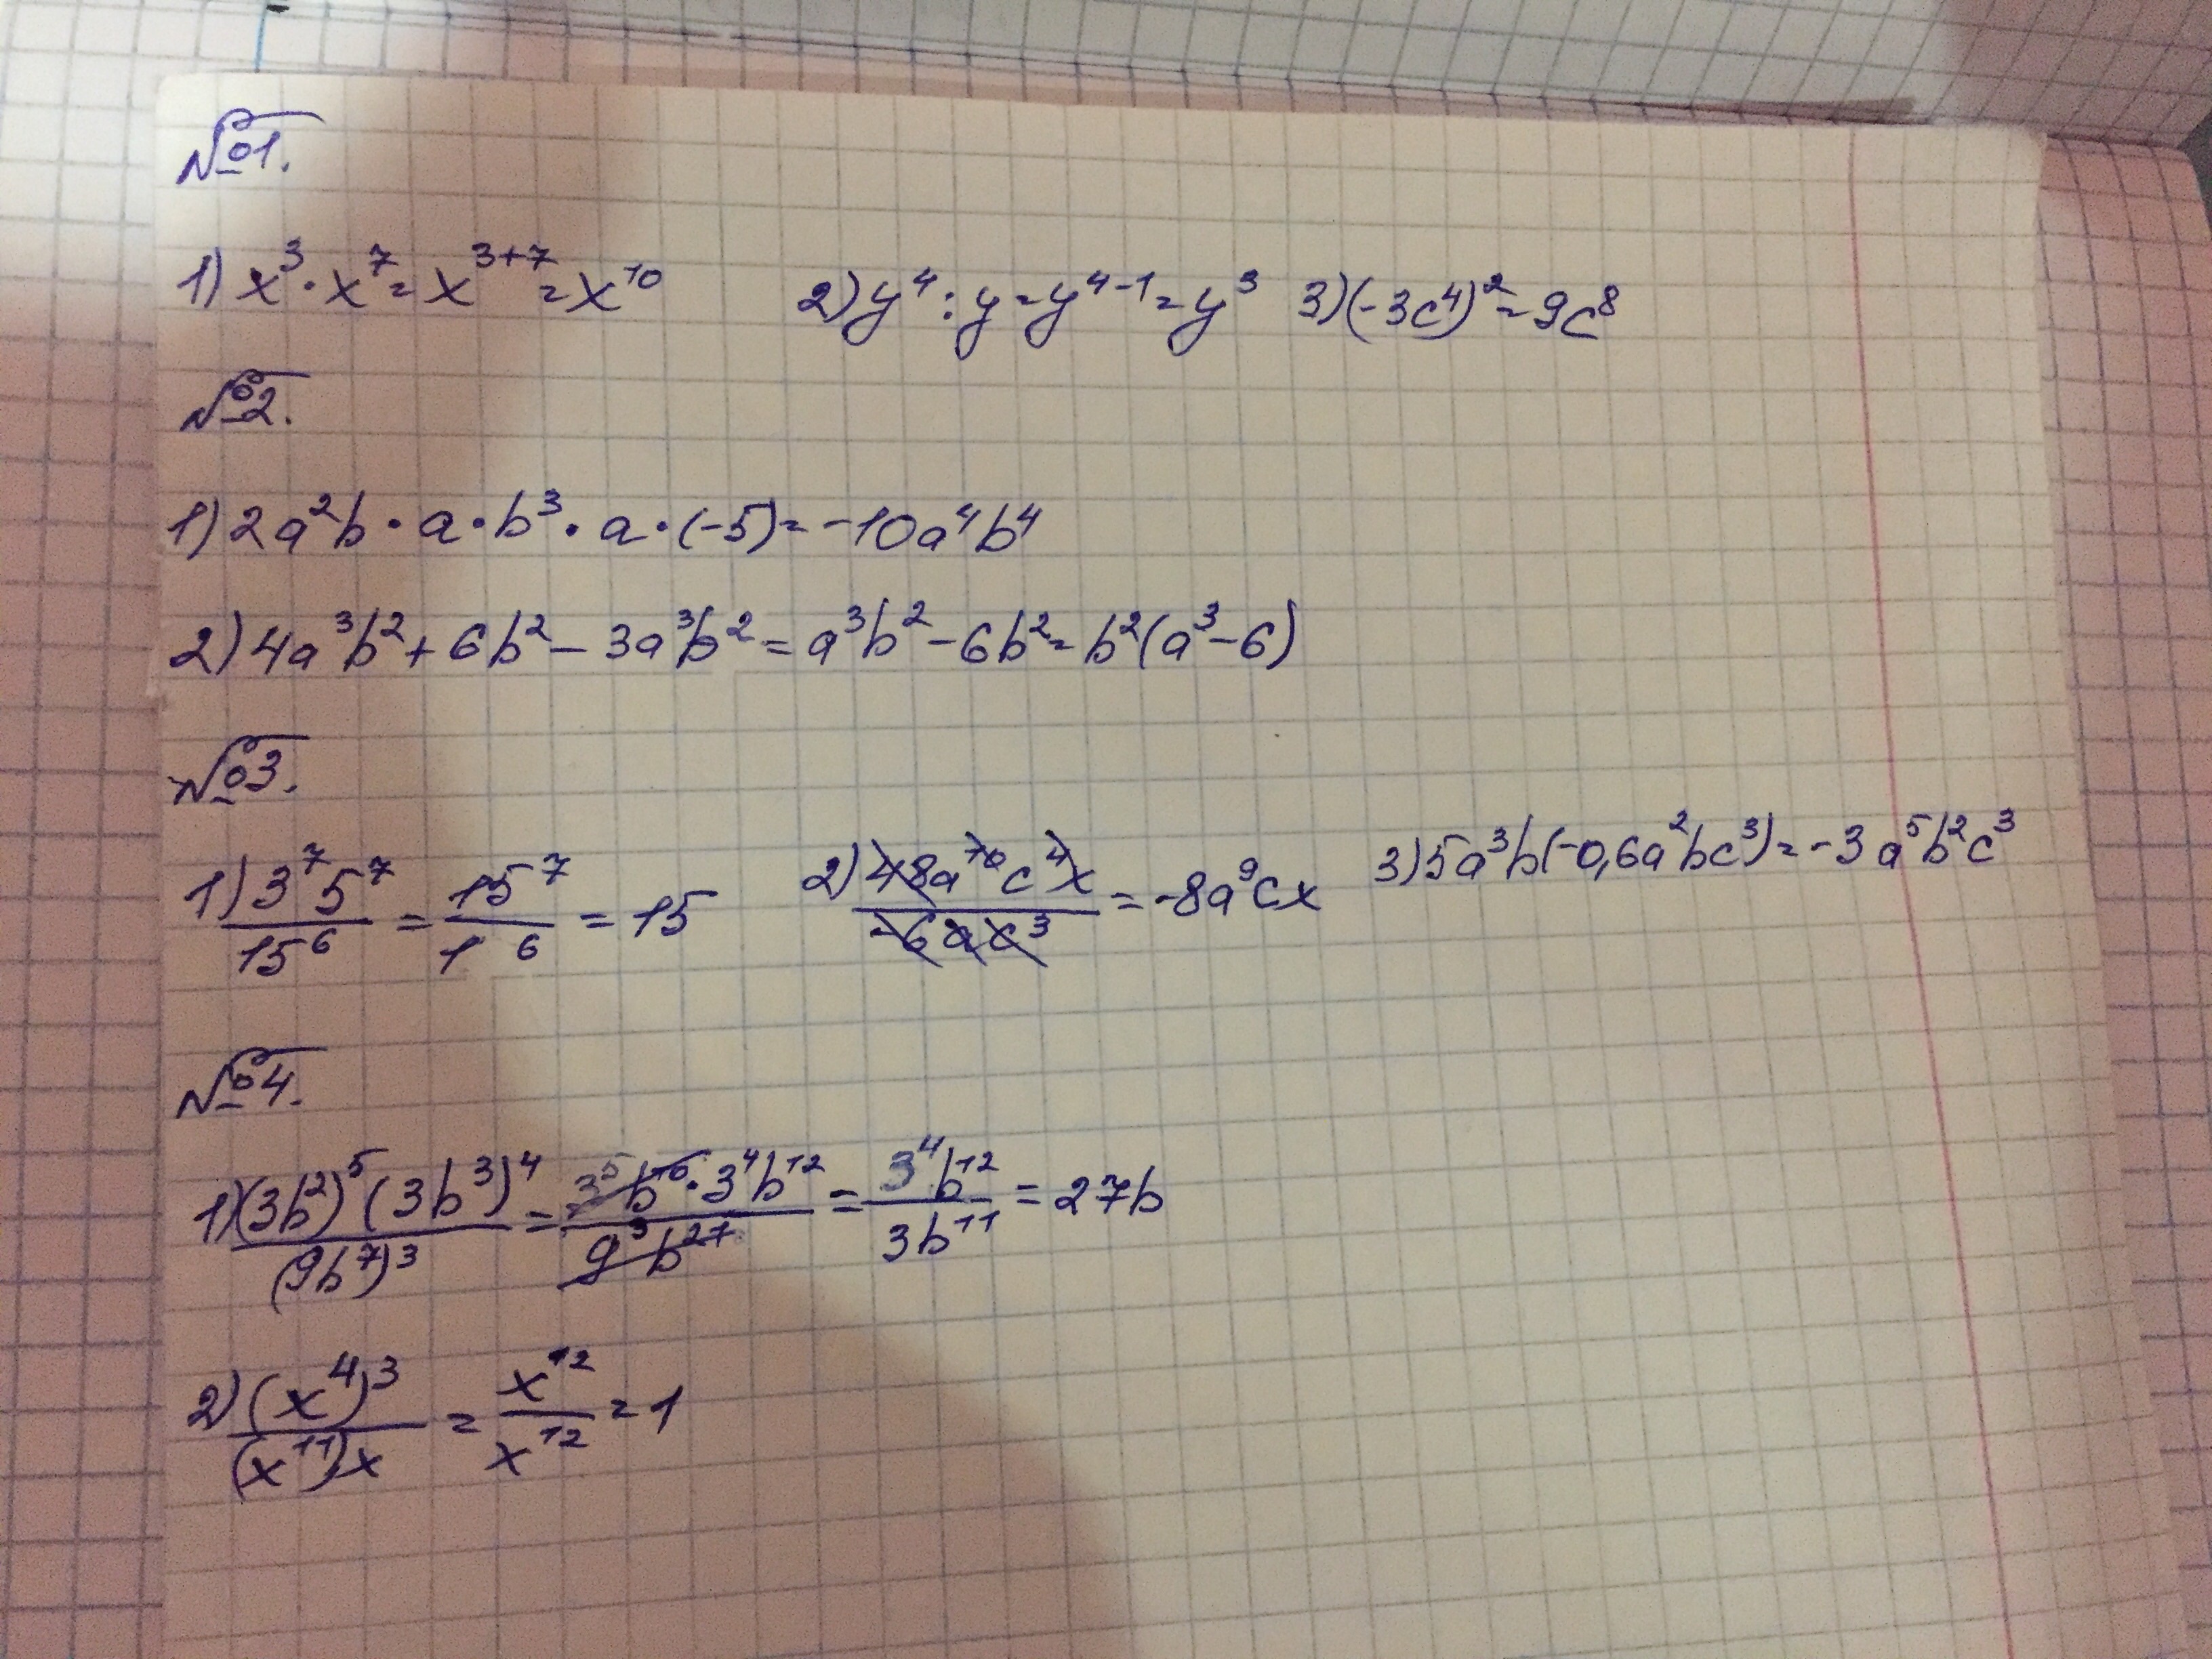 №1.
1) x³·x⁷=x³⁺⁷=x¹⁰ 2) y⁴:y=y⁴⁻¹=y³ 3) (-3c⁴)²=9c⁸
№2.
1) 2a²b·a·b³·a·(-5)=-10a⁴b⁴
2) 4a³b²+6b²-3a³b²=a³b²-6b²=b²(a³-6)
№3.
1) 3⁷5⁷/15⁶=15⁷/1 ⁶=15 2) 48a¹⁰c⁴x/-6ac³=-8a⁹cx 3) 5a³b(-0,6a²bc³)=-3a⁵b²c³
№4.
1) (3b²)⁵(3b³)⁴/(9b⁷)³=3⁵b¹⁰·3⁴b¹²/9³b²⁷=3⁴b¹²/3b¹¹=27b
2) (x⁴)³/(x¹¹)x=x¹²/x¹²=1